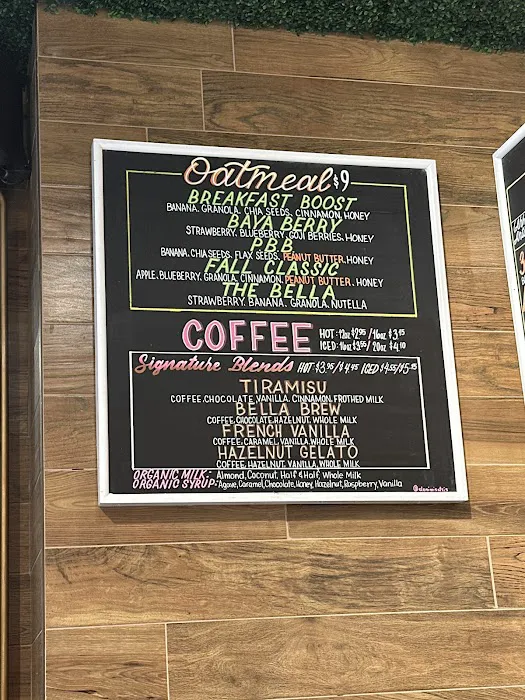 Oatmeal $9
BREAKFAST BOOST
BANANA. GRANOLA. CHIA SEEDS. CINNAMON. HONEY
BAYA BERRY
STRAWBERRY. BLUEBERRY. GOJI BERRIES. HONEY
P.B.B
BANANA. CHIA SEEDS. FLAX SEEDS. PEANUT BUTTER. HONEY
FALL CLASSIC
APPLE. BLUEBERRY. GRANOLA. CINNAMON. PEANUT BUTTER. HONEY
THE BELLA
STRAWBERRY. BANANA. GRANOLA. NUTELLA
COFFEE
HOT: 12oz $2.95 / 16oz $3.45
ICED: 16oz $3.55 / 20oz $4.10
Signature Blends HOT $3.95/$4.45 ICED $4.55/$5.25
TIRAMISU
COFFEE, CHOCOLATE, VANILLA, CINNAMON, FROTHED MILK
BELLA BREW
COFFEE, CHOCOLATE, HAZELNUT, WHOLE MILK
FRENCH VANILLA
COFFEE, CARAMEL, VANILLA, WHOLE MILK
HAZELNUT GELATO
COFFEE, HAZELNUT, VANILLA, WHOLE MILK
ORGANIC MILK: Almond, Coconut, Half & Half, Whole Milk
ORGANIC SYRUP: Agave, Caramel, Chocolate, Honey, Hazelnut, Raspberry, Vanilla